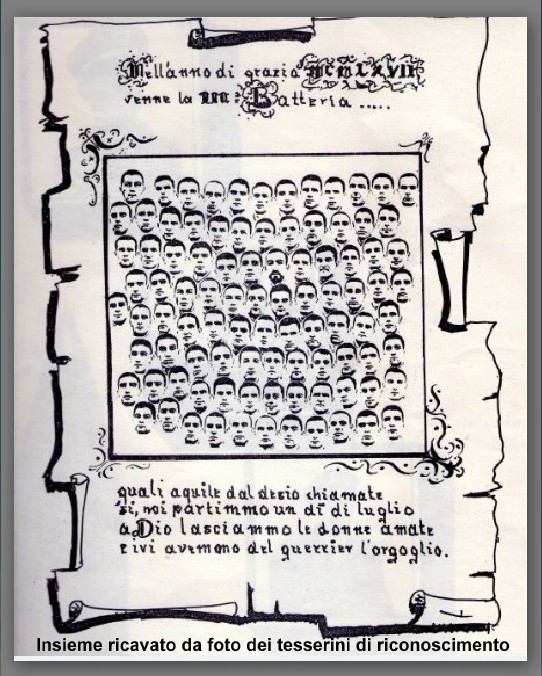 Nell'anno di grazia MCMLXVII
venne la Batteria .....
quali aquile dal desio chiamate
si, noi partimmo un dì di luglio
a Dio lasciammo le donne amate
e ivi avemono del guerrier l'orgoglio.
Insieme ricavato da foto dei tesserini di riconoscimento